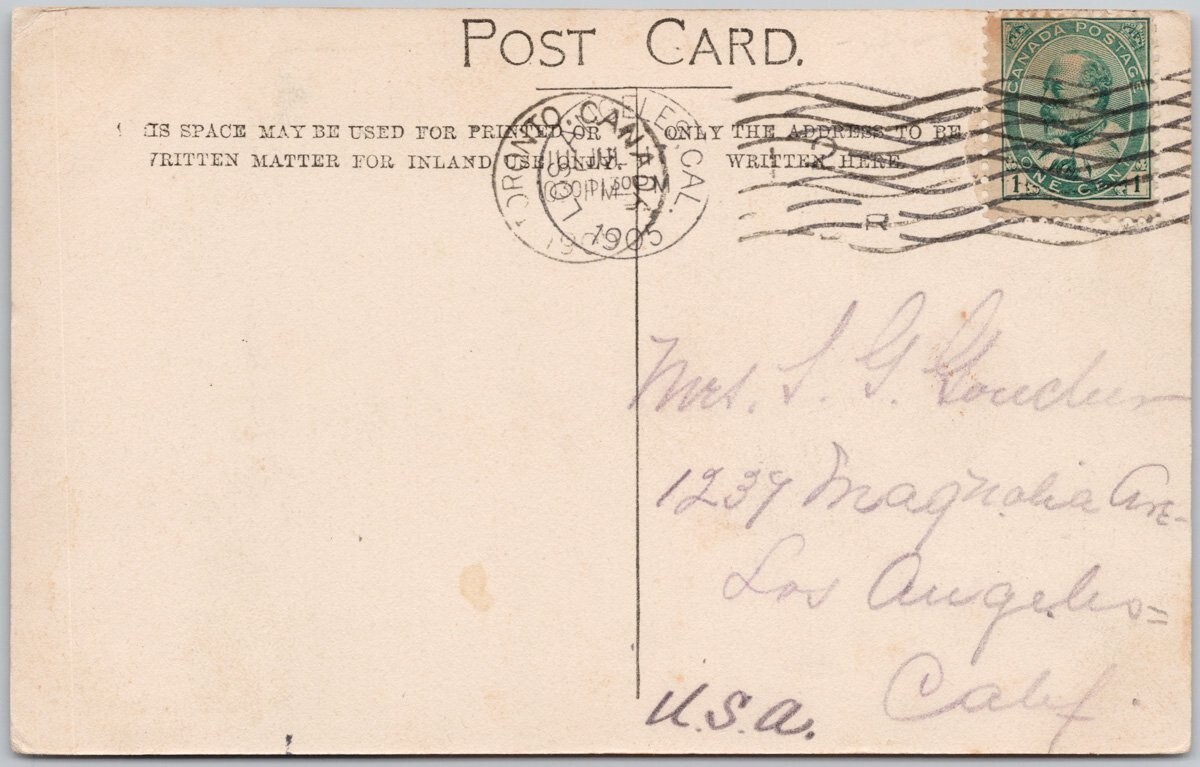 POST CARD.
IS SPACE MAY BE USED FOR PRINTED OR
RITTEN MATTER FOR INLAND USE ONLY.
ONLY THE ADDRESS TO BE
WRITTEN HERE.
TORONTO, CANADA
LOS ANGELES, CAL.
CANADA POSTAGE
1 ONE CENT 1
Mrs. S. G.
1237 Magnolia Ave-
Los Angeles=
Calif.
U.S.A.